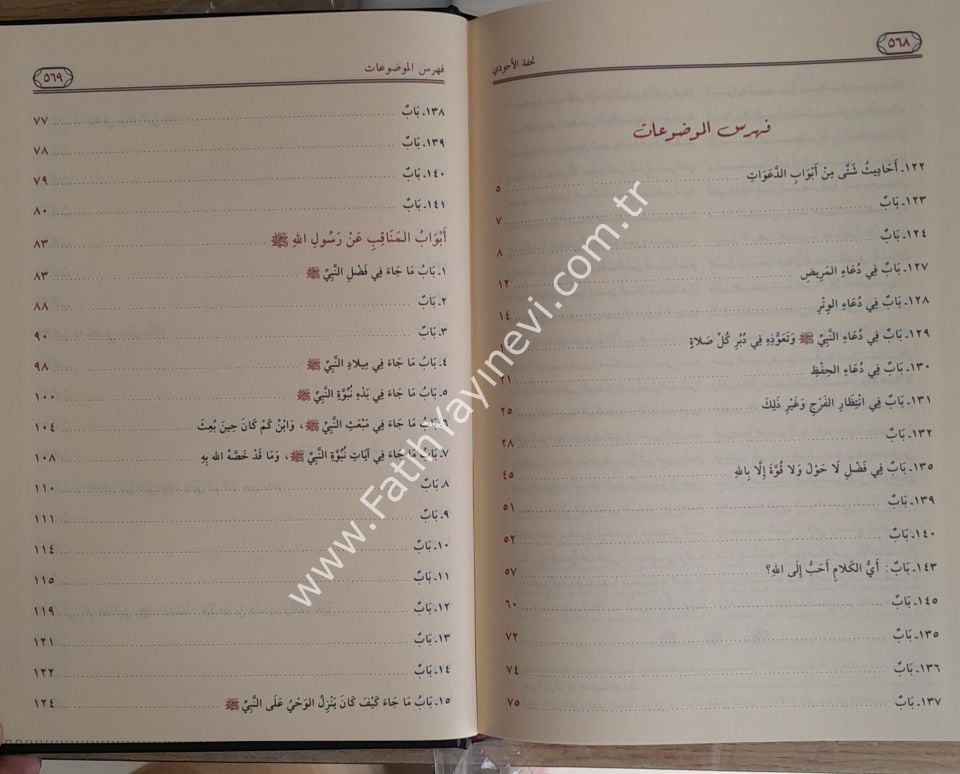 ٥٦٨
تحفة الأحوذي
فهرس الموضوعات
١٢٢ـ أَحَادِيثُ شَتَّى مِنْ أَبْوَابِ الدَّعَوَاتِ ٥
١٢٣ـ بَابٌ ٧
١٢٤ـ بَابٌ ٨
١٢٧ـ بَابٌ فِي دُعَاءِ المَرِيضِ ١٢
١٢٨ـ بَابٌ فِي دُعَاءِ الوِتْرِ ١٤
١٢٩ـ بَابٌ فِي دُعَاءِ النَّبِيِّ ﷺ وَتَعَوُّذِهِ فِي دُبُرِ كُلِّ صَلَاةٍ
١٣٠ـ بَابٌ فِي دُعَاءِ الحِفْظِ ٢١
١٣١ـ بَابٌ فِي انْتِظَارِ الفَرَجِ وَغَيْرِ ذَلِكَ ٢٥
١٣٢ـ بَابٌ ٢٨
١٣٥ـ بَابٌ فِي فَضْلِ لَا حَوْلَ وَلَا قُوَّةَ إِلَّا بِاللهِ ٤٥
١٣٩ـ بَابٌ ٥١
١٤٠ـ بَابٌ ٥٢
١٤٣ـ بَابٌ: أَيُّ الكَلَامِ أَحَبُّ إِلَى اللهِ؟ ٥٧
١٤٥ـ بَابٌ ٦٠
١٣٥ـ بَابٌ ٧٢
١٣٦ـ بَابٌ ٧٤
١٣٧ـ بَابٌ ٧٥
فهرس الموضوعات
٥٦٩
١٣٨ـ بَابٌ ٧٧
١٣٩ـ بَابٌ ٧٨
١٤٠ـ بَابٌ ٧٩
١٤١ـ بَابٌ ٨٠
أَبْوَابُ المَنَاقِبِ عَنْ رَسُولِ اللهِ ﷺ ٨٣
١ـ بَابُ مَا جَاءَ فِي فَضْلِ النَّبِيِّ ﷺ ٨٣
٢ـ بَابٌ ٨٨
٣ـ بَابٌ ٩٠
٤ـ بَابُ مَا جَاءَ فِي مِيلَادِ النَّبِيِّ ﷺ ٩٨
٥ـ بَابُ مَا جَاءَ فِي بَدْءِ نُبُوَّةِ النَّبِيِّ ﷺ ١٠٠
٦ـ بَابُ مَا جَاءَ فِي مَبْعَثِ النَّبِيِّ ﷺ، وَابْنُ كَمْ كَانَ حِينَ بُعِثَ ١٠٤
٧ـ بَابُ مَا جَاءَ فِي آيَاتِ نُبُوَّةِ النَّبِيِّ ﷺ، وَمَا قَدْ خَصَّهُ الله بِهِ ١٠٨
٨ـ بَابٌ ١١٠
٩ـ بَابٌ ١١١
١٠ـ بَابٌ ١١٤
١١ـ بَابٌ ١١٥
١٢ـ بَابٌ ١١٩
١٣ـ بَابٌ ١٢١
١٤ـ بَابٌ ١٢٢
١٥ـ بَابُ مَا جَاءَ كَيْفَ كَانَ يَنْزِلُ الوَحْيُ عَلَى النَّبِيِّ ﷺ ١٢٤
www.FatihYayinevi.com.tr